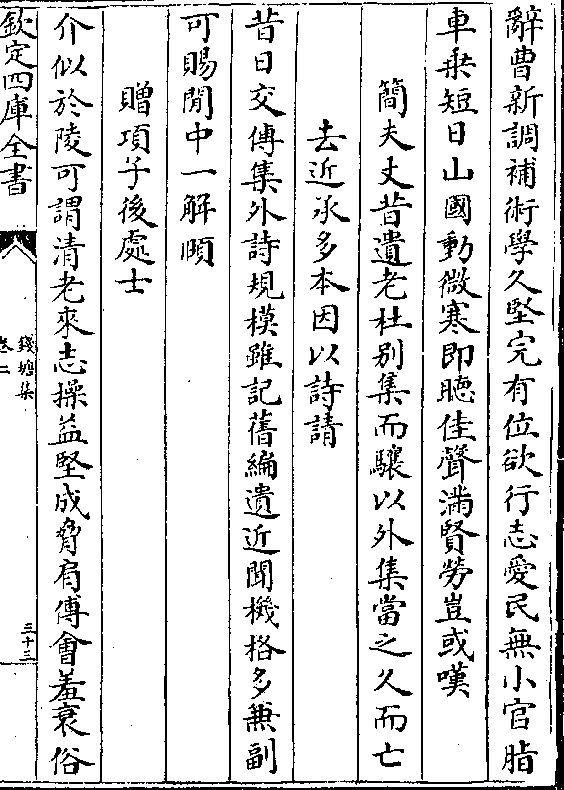 辭曹新調補術學久堅完有位欲行志愛民無小官脂
車乗短日山國動微寒即聴佳聲滿賢勞豈或嘆
簡夫丈昔遺老杜别集而驤以外集當之久而亡
去近承多本因以詩請
昔日交傳集外詩規模雖記舊編遺近聞機格多兼副
可賜閒中一解頤
贈項子後處士
介似於陵可謂清老來志操益堅成脅肩傅會羞衰俗
欽定四庫全書
錢塘集
卷二
三十三